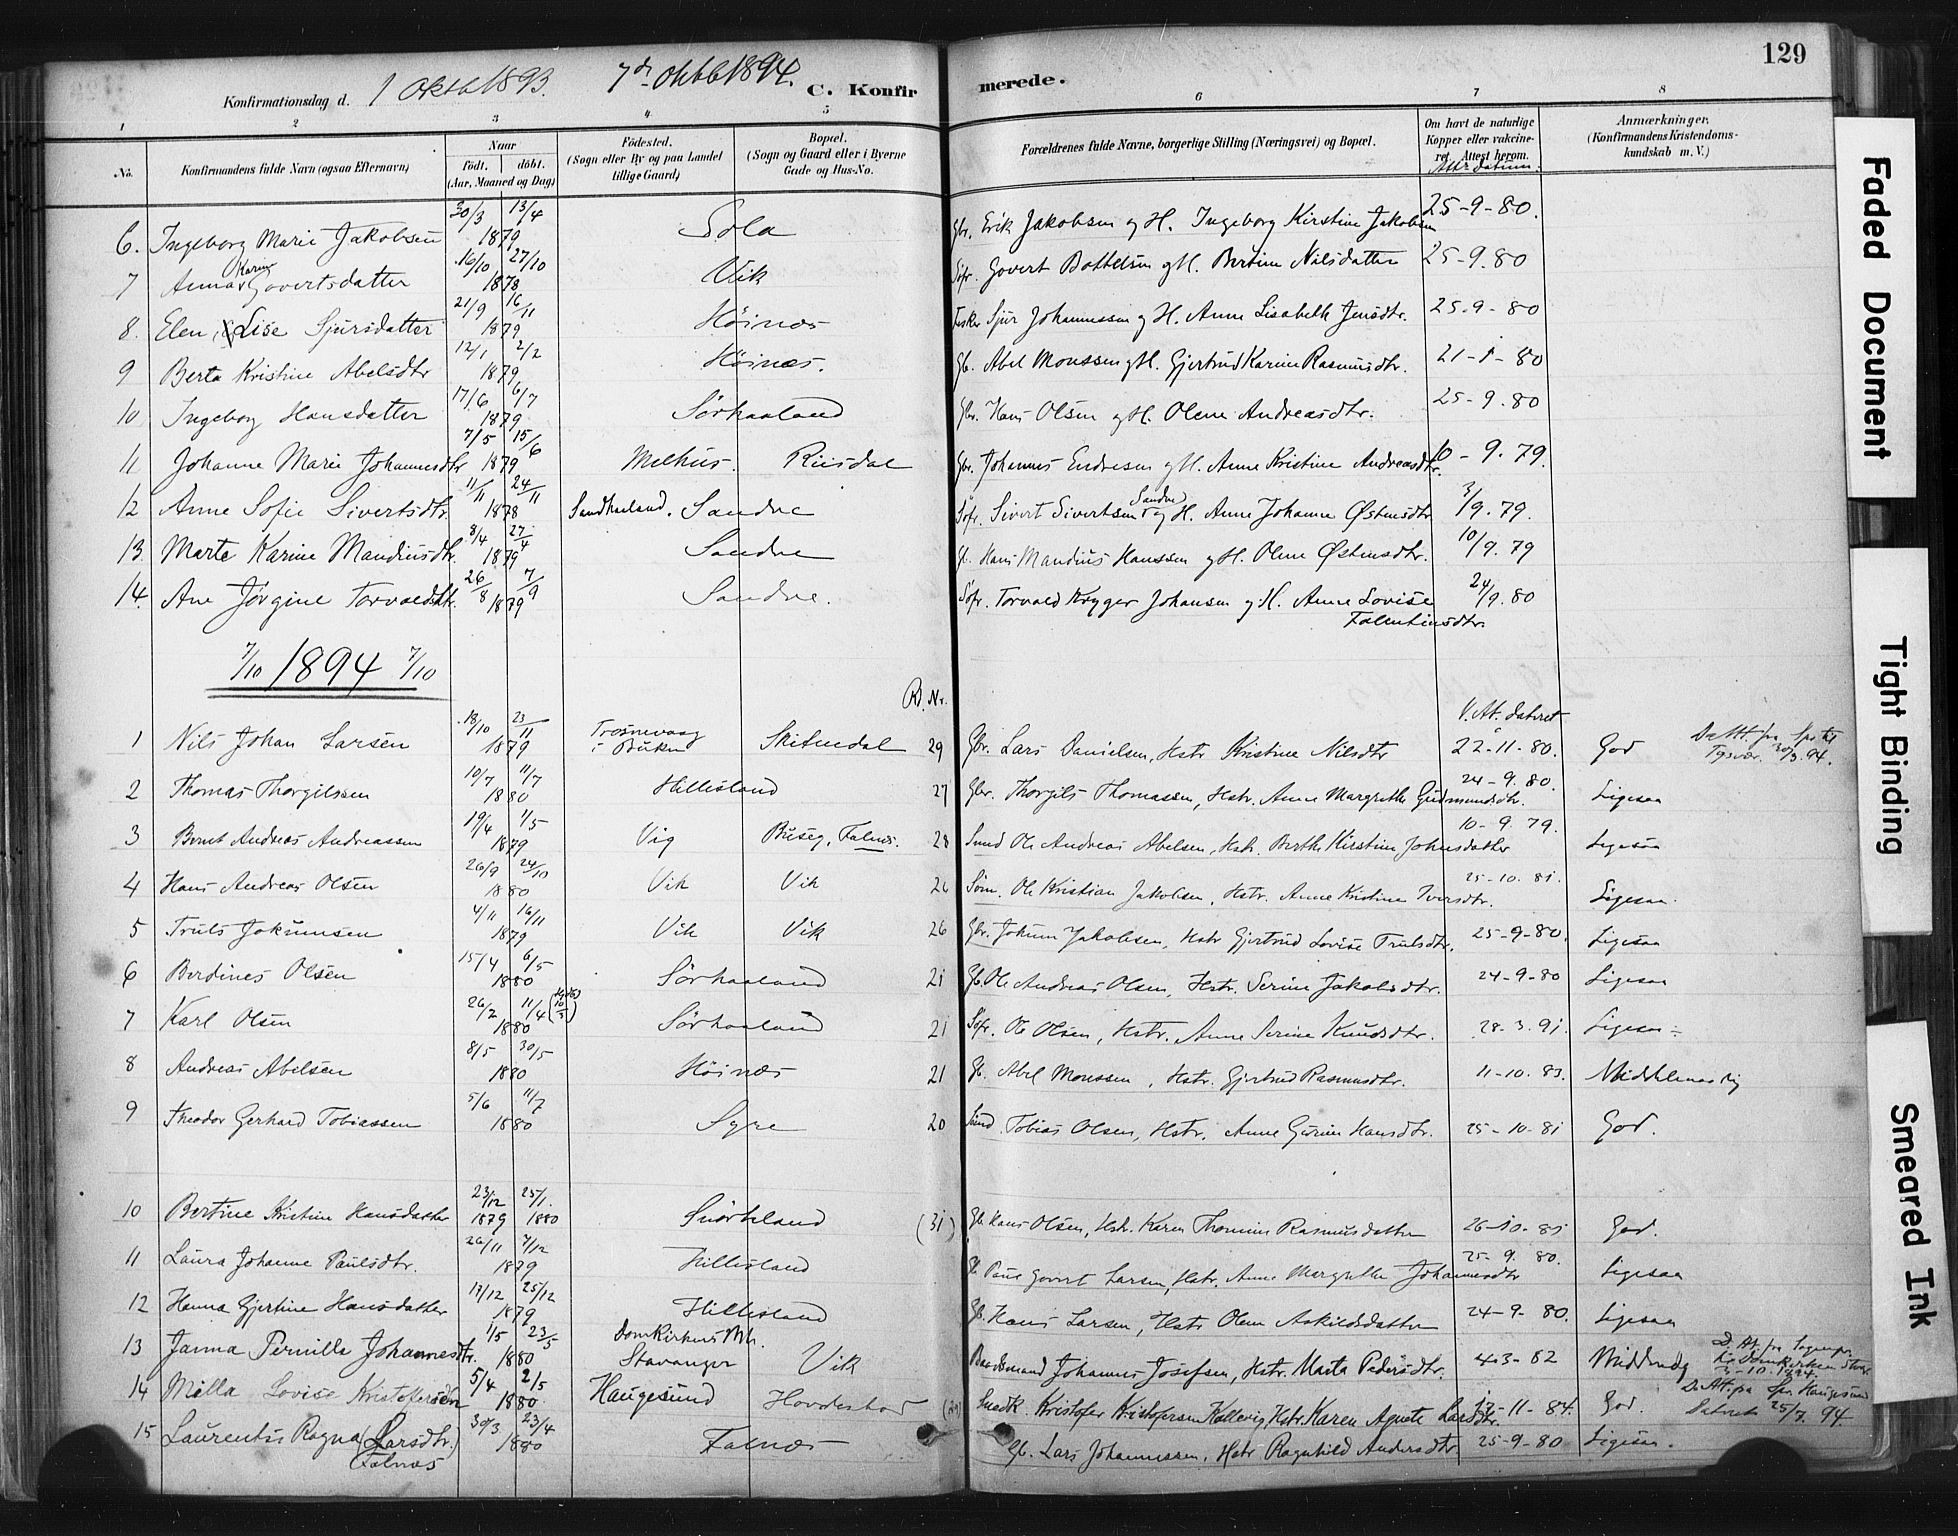 129
Konfirmationsdag d. 1 Oktb 1893. 7de Oktb 1894. C. Konfirmerede.
1 2 3 4 5 6 7 8
No. Konfirmandens fulde Navn (ogsaa Efternavn) Naar født. døbt. (Aar, Maaned og Dag) Fødested. (Sogn eller By og paa Landet tillige Gaard) Bopæl. (Sogn og Gaard eller i Byerne Gade og Hus-No. Forældrenes fulde Navne, borgerlige Stilling (Næringsvei) og Bopæl. Om havt de naturlige Kopper eller vakcineret. Attest herom. Anmærkninger. (Konfirmandens Kristendomskundskab m. V.)
6. Ingeborg Marie Jakobsen 30/3 13/4 1879 Sola Gbr. Erik Jakobsen og H. Ingeborg Kirstine Jakobsen 25-9-80.
7 Anna Karine Govertsdatter 16/10 27/10 1878 Vik Govert Bottelsen og H. Bertine Nilsdatter 25-9.80
8. Elen Lise Sjursdatter 21/9 16/11 1879 Høinæs Fisker Sjur Johannessen og H. Anne Lisabeth Jensdtr. 25.9-80
9 Berta Kristine Abelsdtr 12/1 2/2 1879 Høinæs. Gb. Abel Monssen og H. Gjertrud Karine Rasmusdtr. 21-1-80
10 Ingeborg Hansdatter 17/6 6/7 1879 Sørhaaland Gbr. Hans Olsen og H. Olene Andreasdtr. 25-9.80
11 Johanne Marie Johannesdtr 7/5 15/6 1879 Melhus. Riisdal Gbr. Johannes Endresen og H. Anne Kristine Andreasdtr. 10-9.79.
12 Anne Sofie Sivertsdtr. 11/11 24/11 1878 Sandhaaland. Sandve Søfr. Sivert Sivertsen Sandve og H. Anne Johanne Østensdtr 3/9.79.
13. Marte Karine Mandiusdtr. 8/4 27/4 1879 Sandve G. Hans Mandius Hanssen og H. Olene Østensdtr. 10/9.79
14. Ane Jørgine Torvaldsdtr. 26/8 7/9 1879 Sandve. Søfr. Torvald Kryger Johansen og H. Anne Lovise Falentinsdtr. 24/9.80
7/10 1894 7/10
R. Nr. V. At. dateret
1 Nils Johan Larsen 18/10 23/11 1879 Trosnevaag i Bukn Skitendal 29 Gbr. Lars Danielsen, Hstr Kristine Nilsdtr 22-11-80. God
2 Thomas Thorgilssen 10/7 11/7 1880 Hillesland 27 Gbr. Thorgils Thomassen, Hstr. Anne Margrethe Gudmundsdtr. 24-9.80. Ligesaa
3 Bernt Andreas Andreassen 19/4 1/5 1879 Vig Falnes. 28 Ole Andreas Abelsen, Hstr. Berthe Kirstine Johnsdatter 10-9.79. Ligesaa
4 Hans Andreas Olsen 26/9 24/10 1880 Vik Vik 26 Søm. Ole Kristian Jakobsen, Hstr. Anne Kristine Iversdtr. 25-10.81. Ligesaa.
5 Truls Jokumsen 4/11 16/11 1879 Vik Vik 26 Gbr. Jokum Jakobsen, Hstr Gjertrud Lovise Trulsdtr. 25-9-80. Ligesaa
6 Berdines Olsen 15/4 6/5 1880 Sørhaaland 21 Gb. Ole Andreas Olsen, Hstr. Serine Jakobsdtr. 24-9-80 Ligesaa
7 Karl Olsen 26/2 11/4 1880 Sørhaaland 21 Søfr. Ole Olsen, Hstr. Anne Serine Knudsdtr. 28-3.91. Ligesaa
8 Andreas Abelsen 8/5 30/5 1880 Høinæs 21 Gb. Abel Monssen, Hstr. Gjertrud Rasmusdtr. 11-10.83. Middelmaadig
9 Theodor Gerhard Tobiassen 5/6 11/7 1880 Syre 20 Tobias Olsen, Hstr. Anne Gurine Hansdtr. 25-10-81 God.
10 Bertine Kristine Hansdatter 23/12 1879 25/1. 1880 Snørteland (31) Gb. Hans Olsen, Hstr. Karen Thomine Rasmusdatter 26-10-81 God.
11 Laura Johanne Paulsdtr. 26/11 7/12 1879 Hillesland Paul Govert Larsen, Hstr. Anne Margrethe Johannesdtr 25-9.80. Ligesaa
12 Hanna Gjertine Hansdatter 17/12 25/12 1879 Hillesland Gb. Hans Larsen, Hstr Olene Askildsdatter 24-9-80. Ligesaa
13 Janna Pernille Johannesdtr. 1/5 23/5 1880 Domkirkens Mh. Stavanger Vik Baadsmand Johannes Josefsen, Hstr. Marta Pedersdtr. 4-3-82 Middmdg
14 Milla Lovise Kristofersdtr 5/4 2/5 1880 Haugesund Hovdestad Snedk. Kristofer Kristofersen Kallevig, Hstr. Karen Agnete Larsdtr. 17-11-84. God. D. Att. fra Spr. Haugesund Dateret 25/7 94
15 Laurentse Ragna (Larsdtr.) Falnæs 30/3 23/4 1880 Falnæs Gb. Lars Johannessen, Hstr Ragnhild Andersdtr. 25-9-80 Ligesaa.
Faded Document
Tight Binding
Smeared Ink